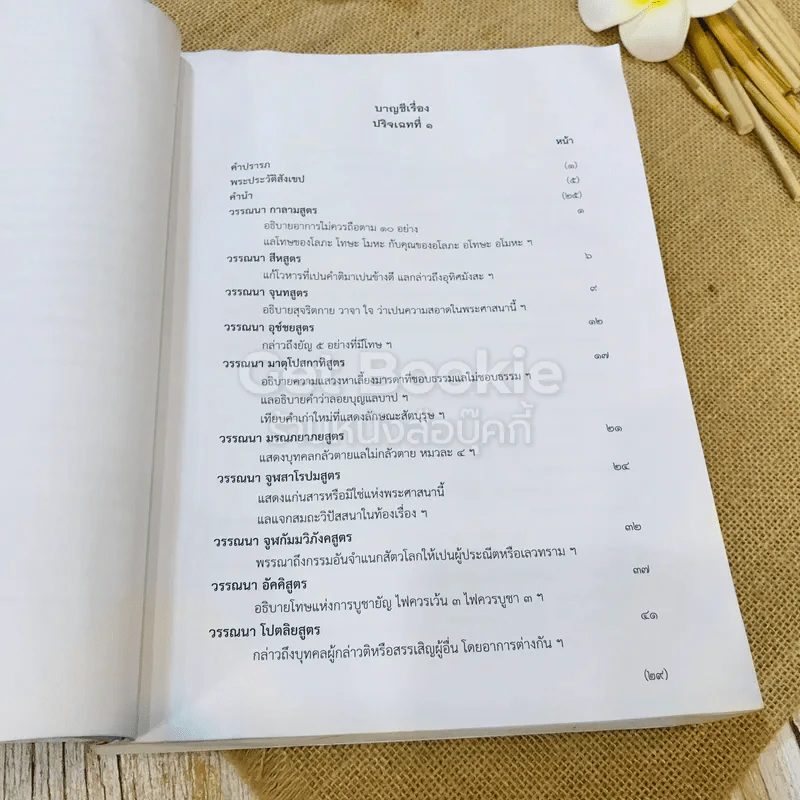 บาญชีเรื่อง
ปริจเฉทที่ ๑
หน้า
คำปรารภ (๑)
พระประวัติสังเขป (๕)
คำนำ (๒๕)
วรรณนา กาลามสูตร ๑
อธิบายอาการไม่ควรถือตาม ๑๐ อย่าง
แลโทษของโลภะ โทษะ โมหะ กับคุณของอโลภะ อโทษะ อโมหะ ฯ
วรรณนา สีหสูตร ๖
แก้ไวหารที่เปนคำติมาเปนข้างดี แลกล่าวถึงอุทิศมังสะ ฯ
วรรณนา จุนทสูตร ๙
อธิบายสุจริตกาย วาจา ใจ ว่าเปนความสอาดในพระศาสนานี้ ฯ
วรรณนา อุชชยสูตร ๑๒
กล่าวถึงยัญ ๕ อย่างที่มีโทษ ฯ
วรรณนา มาตุโปสกาทิสูตร ๑๗
อธิบายความแสวงหาเลี้ยงมารดาที่ชอบธรรมแลไม่ชอบธรรม ฯ
แลอธิบายคำว่าลอยบุญแลบาป ฯ
เทียบคำเก่าใหม่ที่แสดงลักษณะสัตบุรุษ ฯ
วรรณนา มรณภยาภยสูตร ๒๑
แสดงบุทคลกลัวตายแลไม่กลัวตาย หมวละ ๔ ฯ
วรรณนา จูฬสาโรปมสูตร ๒๔
แสดงแก่นสารหรือมิใช่แห่งพระศาสนานี้
แลแจกสมถะวิปัสสนาในท้องเรื่อง ฯ
วรรณนา จูฬกัมมวิภังคสูตร ๓๒
พรรณาถึงกรรมอันจำแนกสัตวโลกให้เปนผู้ประณีตหรือเลวทราม ฯ
วรรณนา อัคคิสูตร ๓๗
อธิบายโทษแห่งการบูชายัญ ไฟควรเว้น ๓ ไฟควรบูชา ๓ ฯ
วรรณนา โปตลิยสูตร ๔๑
กล่าวถึงบุทคลผู้กล่าวติหรือสรรเสิญผู้อื่น โดยอาการต่างกัน ฯ
(๒๙)
Get Bookie
ร้านหนังสือบุ๊คกี้